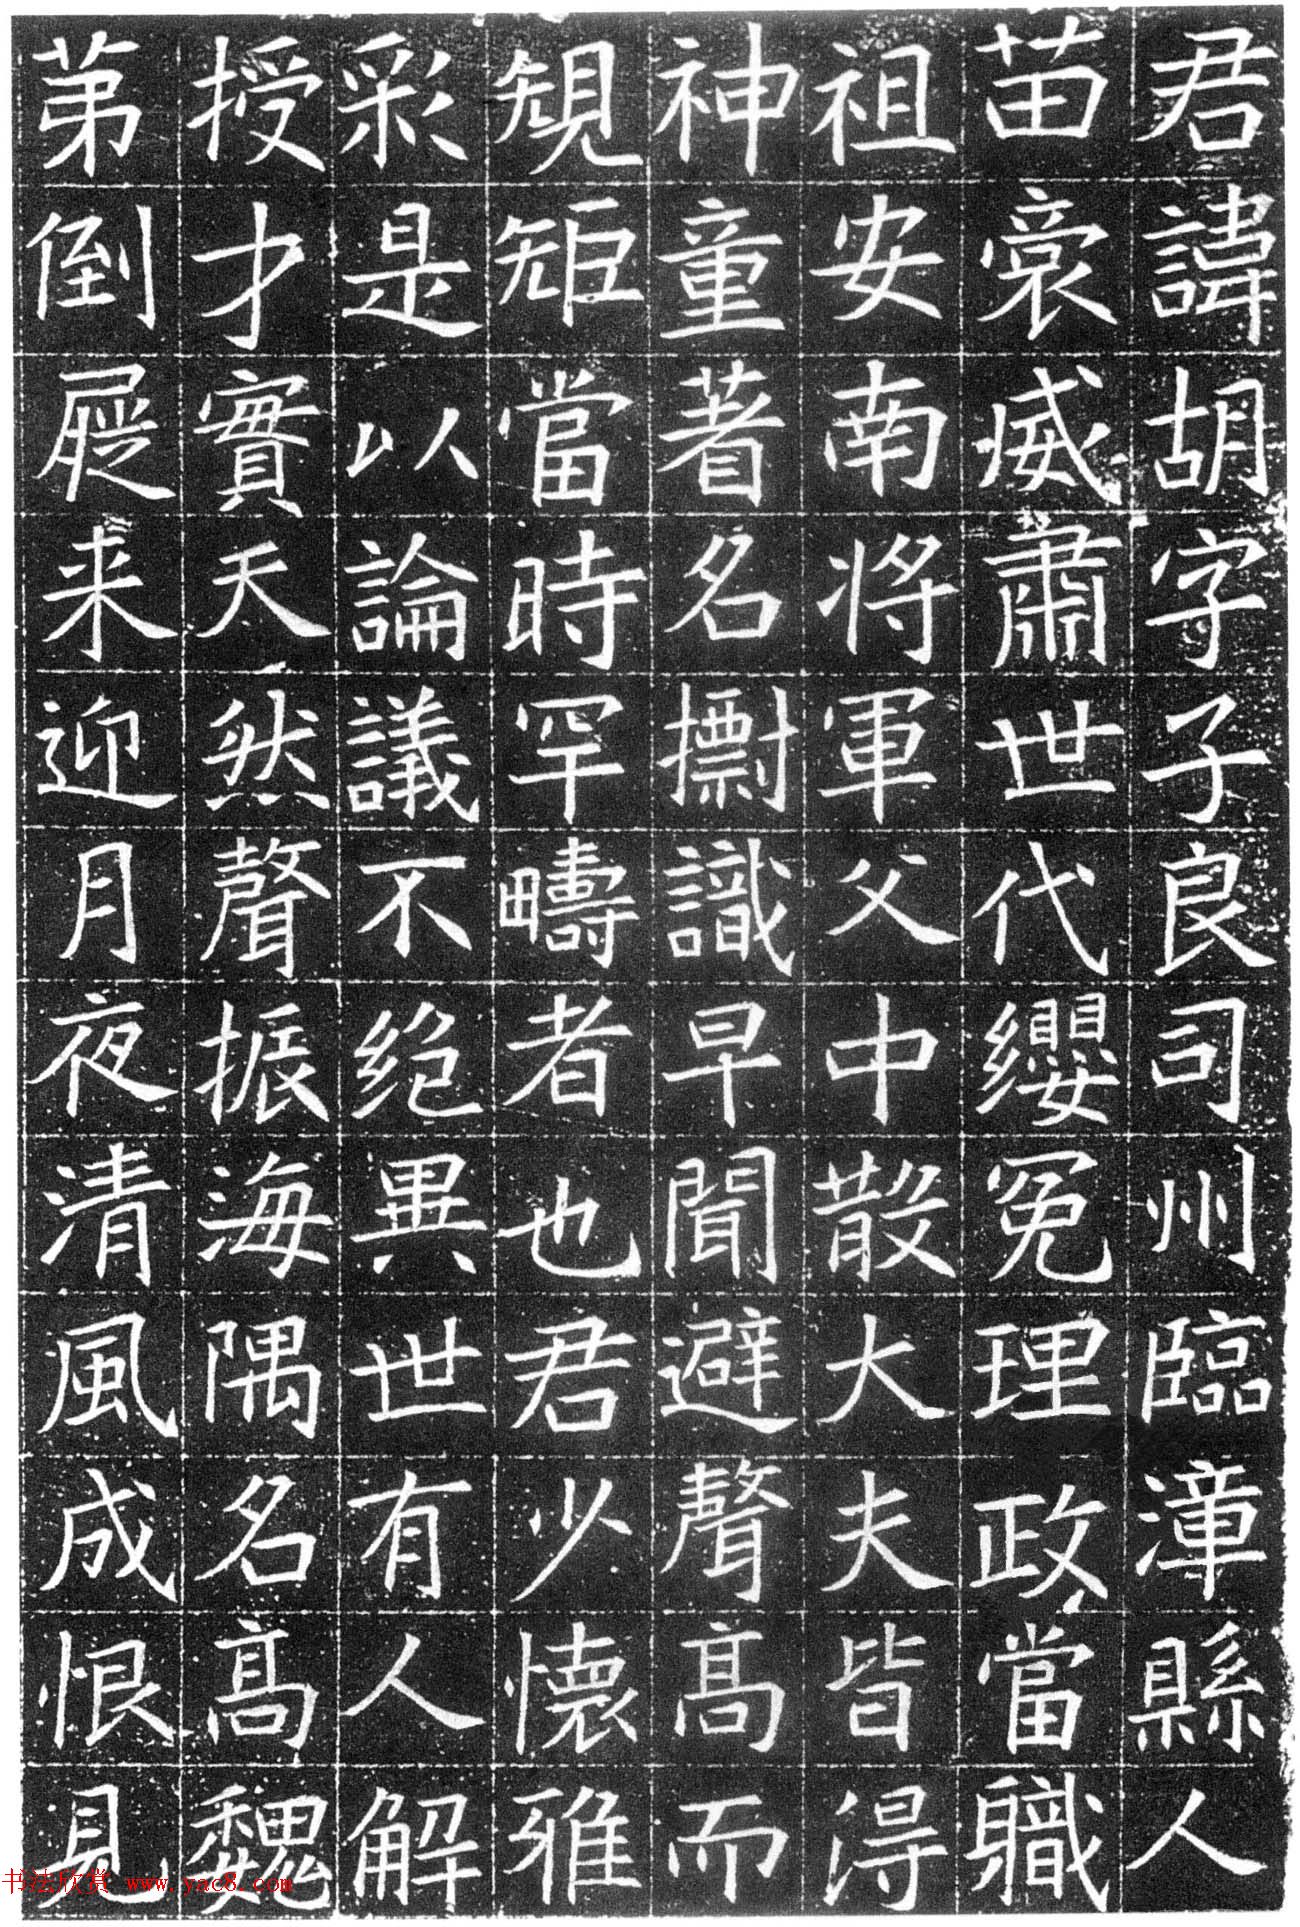 君諱胡字子良司州臨漳縣人
苗裔威肅世代纓冕理政當職
祖安南將軍父中散大夫皆淂
神童著名識早聞避聲高而
規矩當時罕疇者也君少懷雅
彩是以論議不絕異世有人解
授才實天然聲振海隅名高魏
苐倒屣来迎月夜清風成恨見
书法欣赏 www.yac8.com